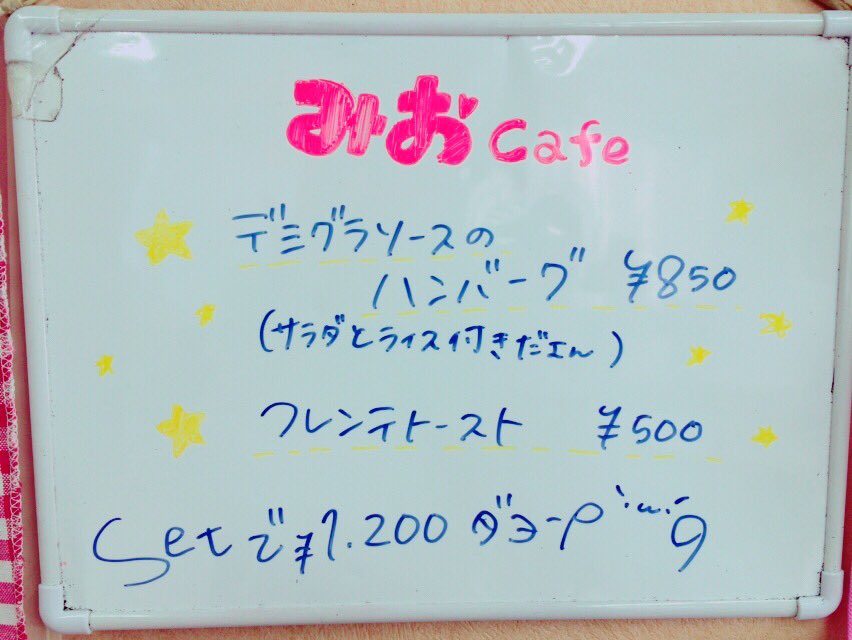 みおcafe
デミグラソースの
ハンバーグ ¥850
(サラダとライス付きだエん)
フレンテトースト ¥500
Setで¥1.200ダヨーρ`ω´9